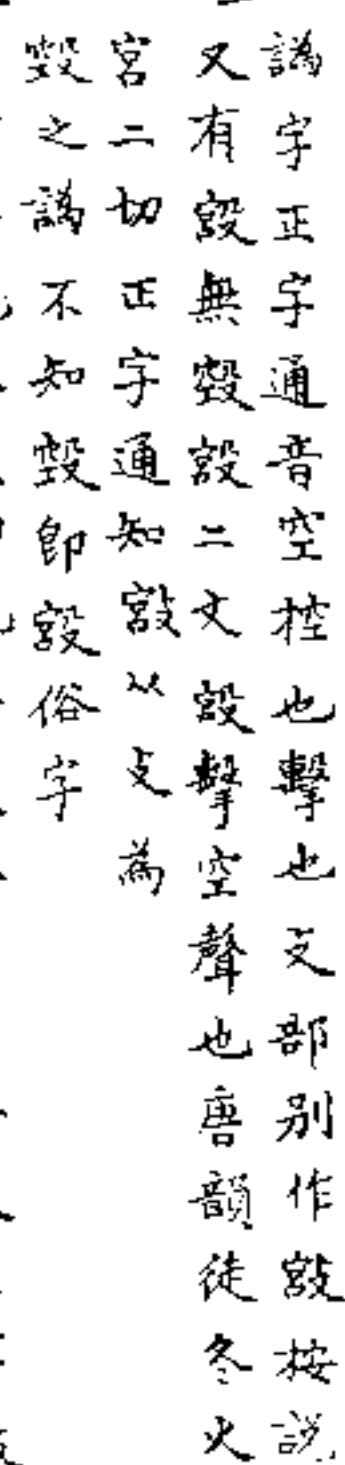 譌字正字通音空控也擊也文部别作㪬按說
又有㲁無𣪯㲁二文㲁擊空聲也唐韻徒冬火
宮二切正字通知㪬以攴為
𣪯之譌不知𣪯即㲁俗字